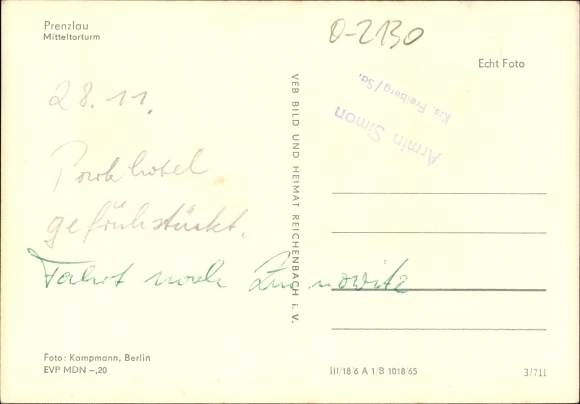 Prenzlau
Mitteltorturm
O-2130
Echt Foto
Armin Simon
Krs. Freiberg/Sa.
28.11.
Parkhotel
gefrühstückt.
Fahrt nach Zinnowitz
VEB BILD UND HEIMAT REICHENBACH i. V.
Foto: Kampmann, Berlin
EVP MDN –,20
III/18/6 A 1/B 1018/65
3/711